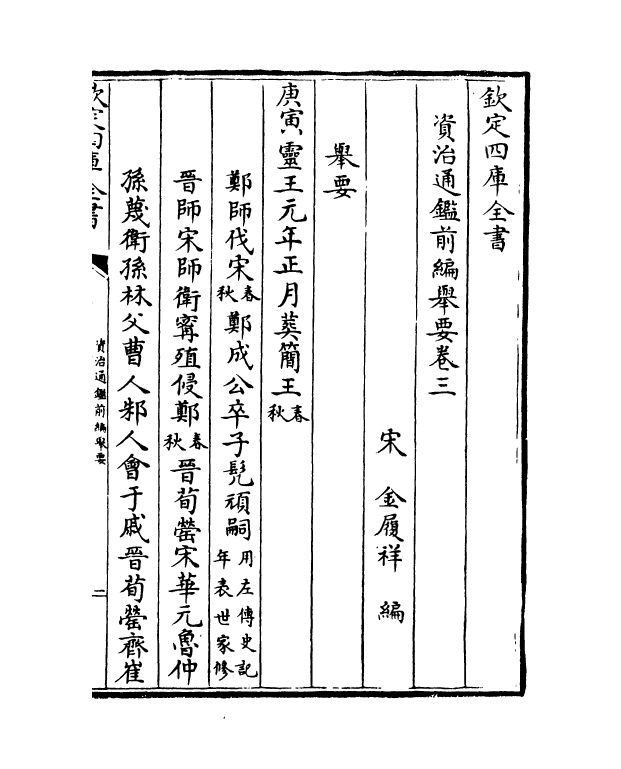 欽定四庫全書
資治通鑑前編舉要卷三
宋 金履祥 編
舉要
庚寅靈王元年正月葬簡王春秋
鄭師伐宋春秋鄭成公卒子髠頑嗣用左傳史記年表世家修
晉師宋師衛甯殖侵鄭春秋晉荀罃宋華元魯仲
孫蔑衛孫林父曹人邾人會于戚晉荀罃齊崔
欽定四庫全書
資治通鑑前編舉要
二